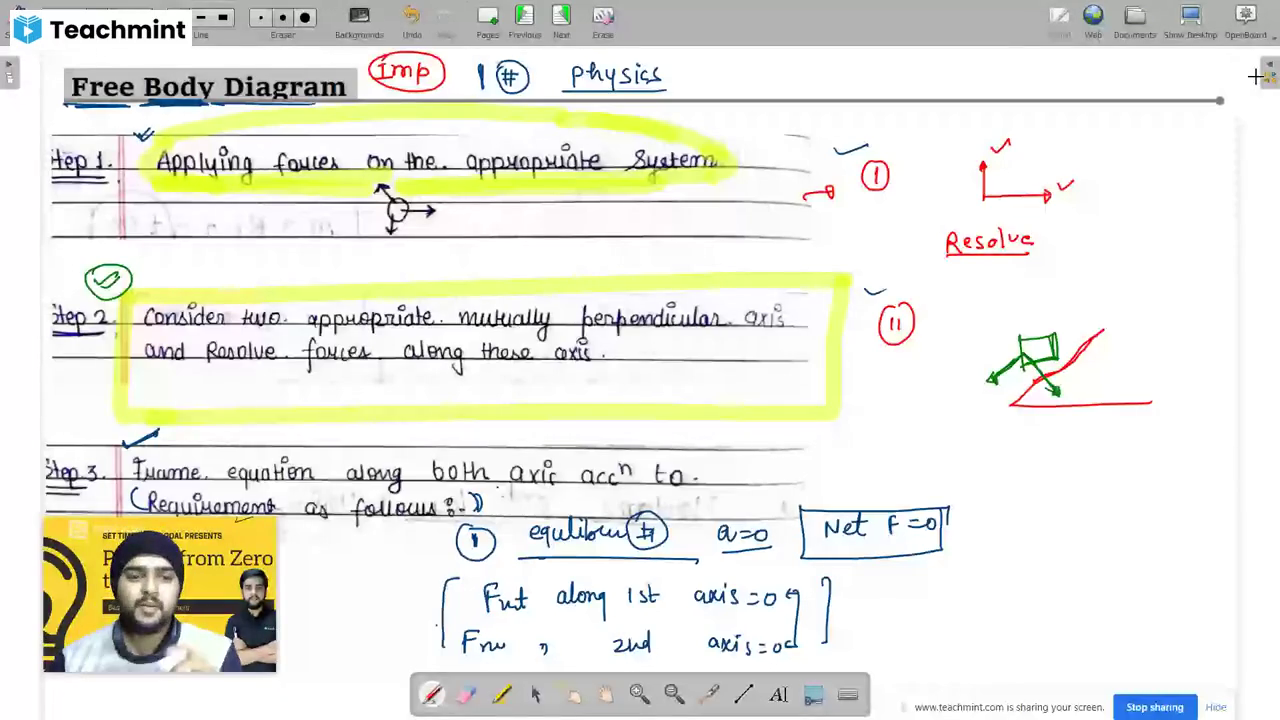 Line
Eraser
Backgrounds
Undo
Pages
Previous
Next
Erase
Web
Documents
Show Desktop
OpenBoard
Teachmint
Free Body Diagram
Imp
1 # Physics
Step 1. Applying forces on the appropriate System
I
Resolve
Step 2. Consider two appropriate mutually perpendicular axis
and Resolve forces along these axis.
II
Step 3. Frame equation along both axic accn to.
(Requirement as follows:-)
1 equlibrium # a=0 Net F=0
Fnet along 1st axis=0
Fne " 2nd axis=0
SET TIME GOAL PRESENTS
from Zero
AI
www.teachmint.com is sharing your screen.
Stop sharing
Hide